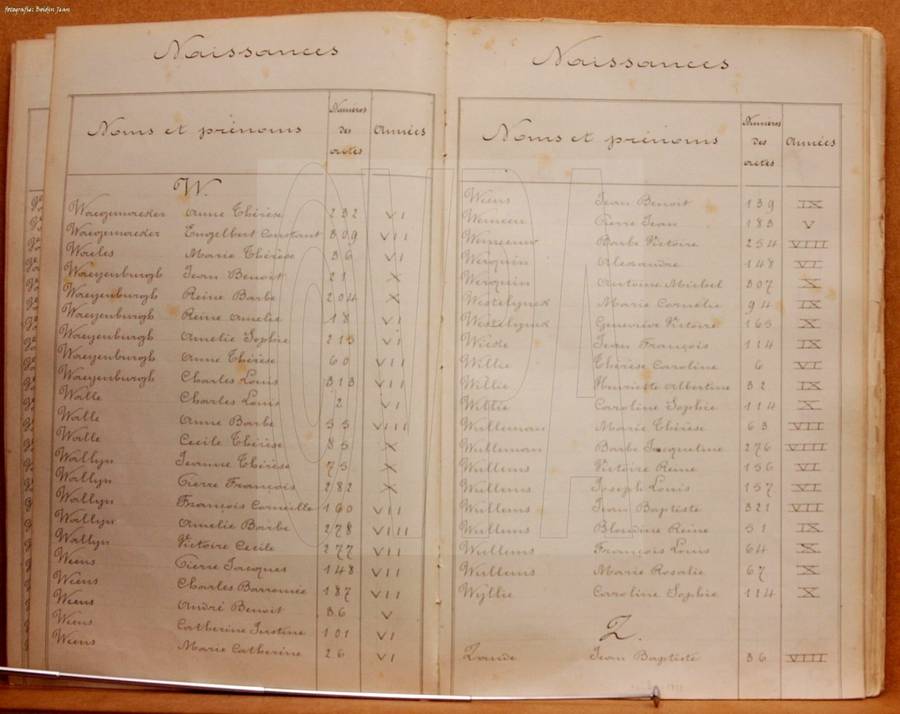 fotografie: Beidin Jean
Naissances
Noms et prénoms Numéros des actes Années
W.
Waegemaeker Anne Thérèse 232 VI
Waegemaeker Engelbert Constant 309 VII
Waeles Marie Thérèse 36 VI
Waeyenburgh Jean Benoit 21 X
Waeyenburgh Reine Barbe 204 X
Waeyenburgh Reine Amelie 18 VI
Waeyenburgh Amelie Sophie 213 VI
Waeyenburgh Anne Thérèse 60 VII
Waeyenburgh Charles Louis 313 VII
Walle Charles Louis 2 VI
Walle Anne Barbe 55 VIII
Walle Cecile Thérèse 85 X
Wallyn Jeanne Thérèse 75 X
Wallyn Pierre François 282 X
Wallyn François Corneille 160 VII
Wallyn Amelie Barbe 278 VIII
Wallyn Victoire Cecile 277 VII
Weens Pierre Jacques 148 VII
Weens Charles Barromée 187 VII
Weens André Benoit 36 V
Weens Catherine Justine 101 VI
Weens Marie Catherine 26 VI
Naissances
Noms et prénoms Numéros des actes Années
Wiens Jean Benoit 139 IX
Pierre Jean 183 V
Barbe Victoire 254 VIII
Werquin Alexandre 148 VI
Werquin Antoine Michel 307 X
Westelynck Marie Cornélie 94 IX
Westelynck Geneviève Victoire 165 X
Jean François 114 IX
Willie Thérèse Caroline 6 VI
Willie Henriette Albertine 32 IX
Willie Caroline Sophie 114 X
Willeman Marie Thérèse 63 VII
Willeman Barbe Jacqueline 276 VIII
Willems Victoire Reine 156 VI
Willems Joseph Louis 157 VI
Willems Jean Baptiste 321 VII
Willems Blondine Reine 51 IX
Willems François Louis 64 X
Willems Marie Rosalie 67 X
Wyllie Caroline Sophie 114 X
Z.
Zande Jean Baptiste 36 VIII